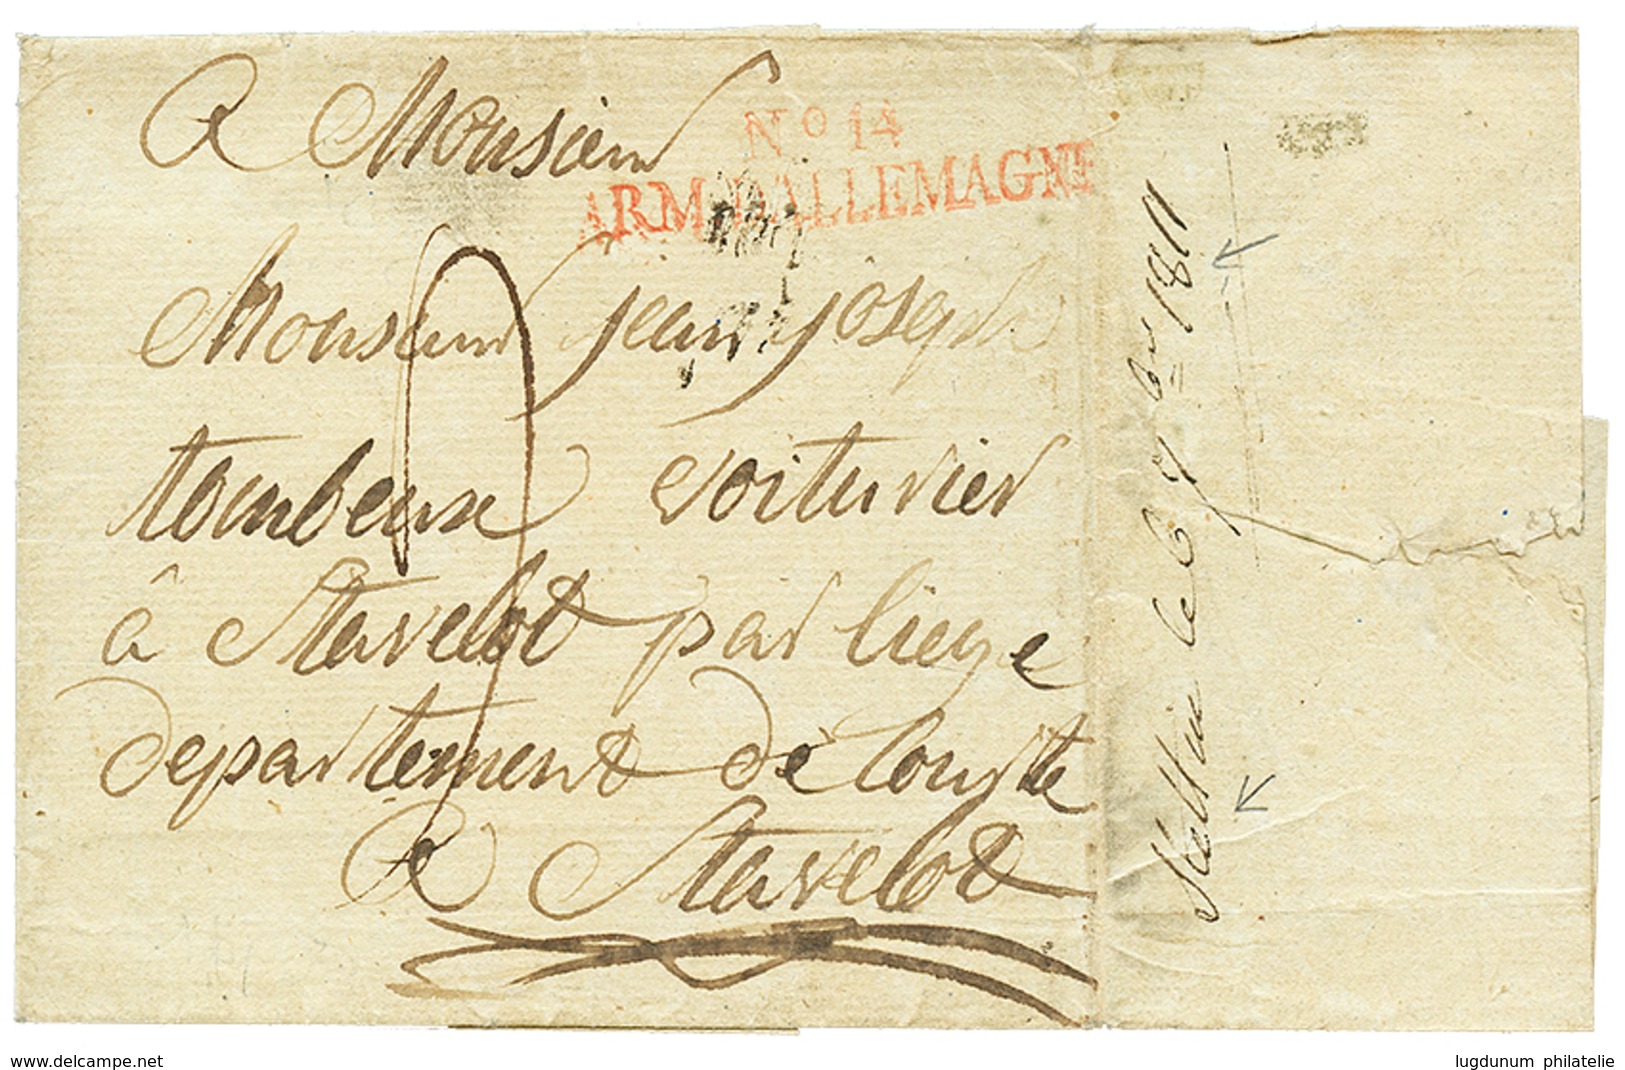 A Monsieur
No 14
ARM. D'ALLEMAGNE
Monsieur jean joseph
tombeux voiturier
â Stavelot par liege
departement de lourte
A Stavelot
Stettin le 6 9bre 1811
www.delcampe.net
lugdunum philatelie